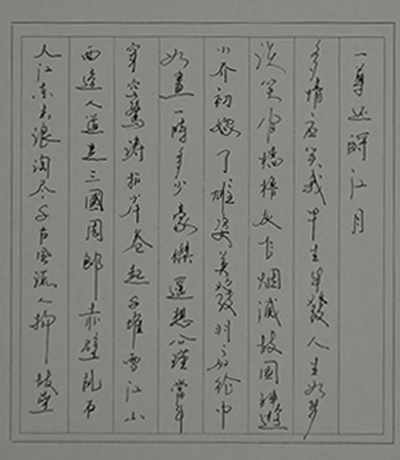 大江东去浪淘尽千古風流人物故壘
西邊人道是三國周郎赤壁亂石
穿空驚濤拍岸卷起千堆雪江山
如畫一時多少豪傑遥想公瑾當年
小乔初嫁了雄姿英發羽扇纶巾
談笑间檣橹灰飞烟滅故国神遊
多情应笑我早生華發人生如梦
一尊还酹江月